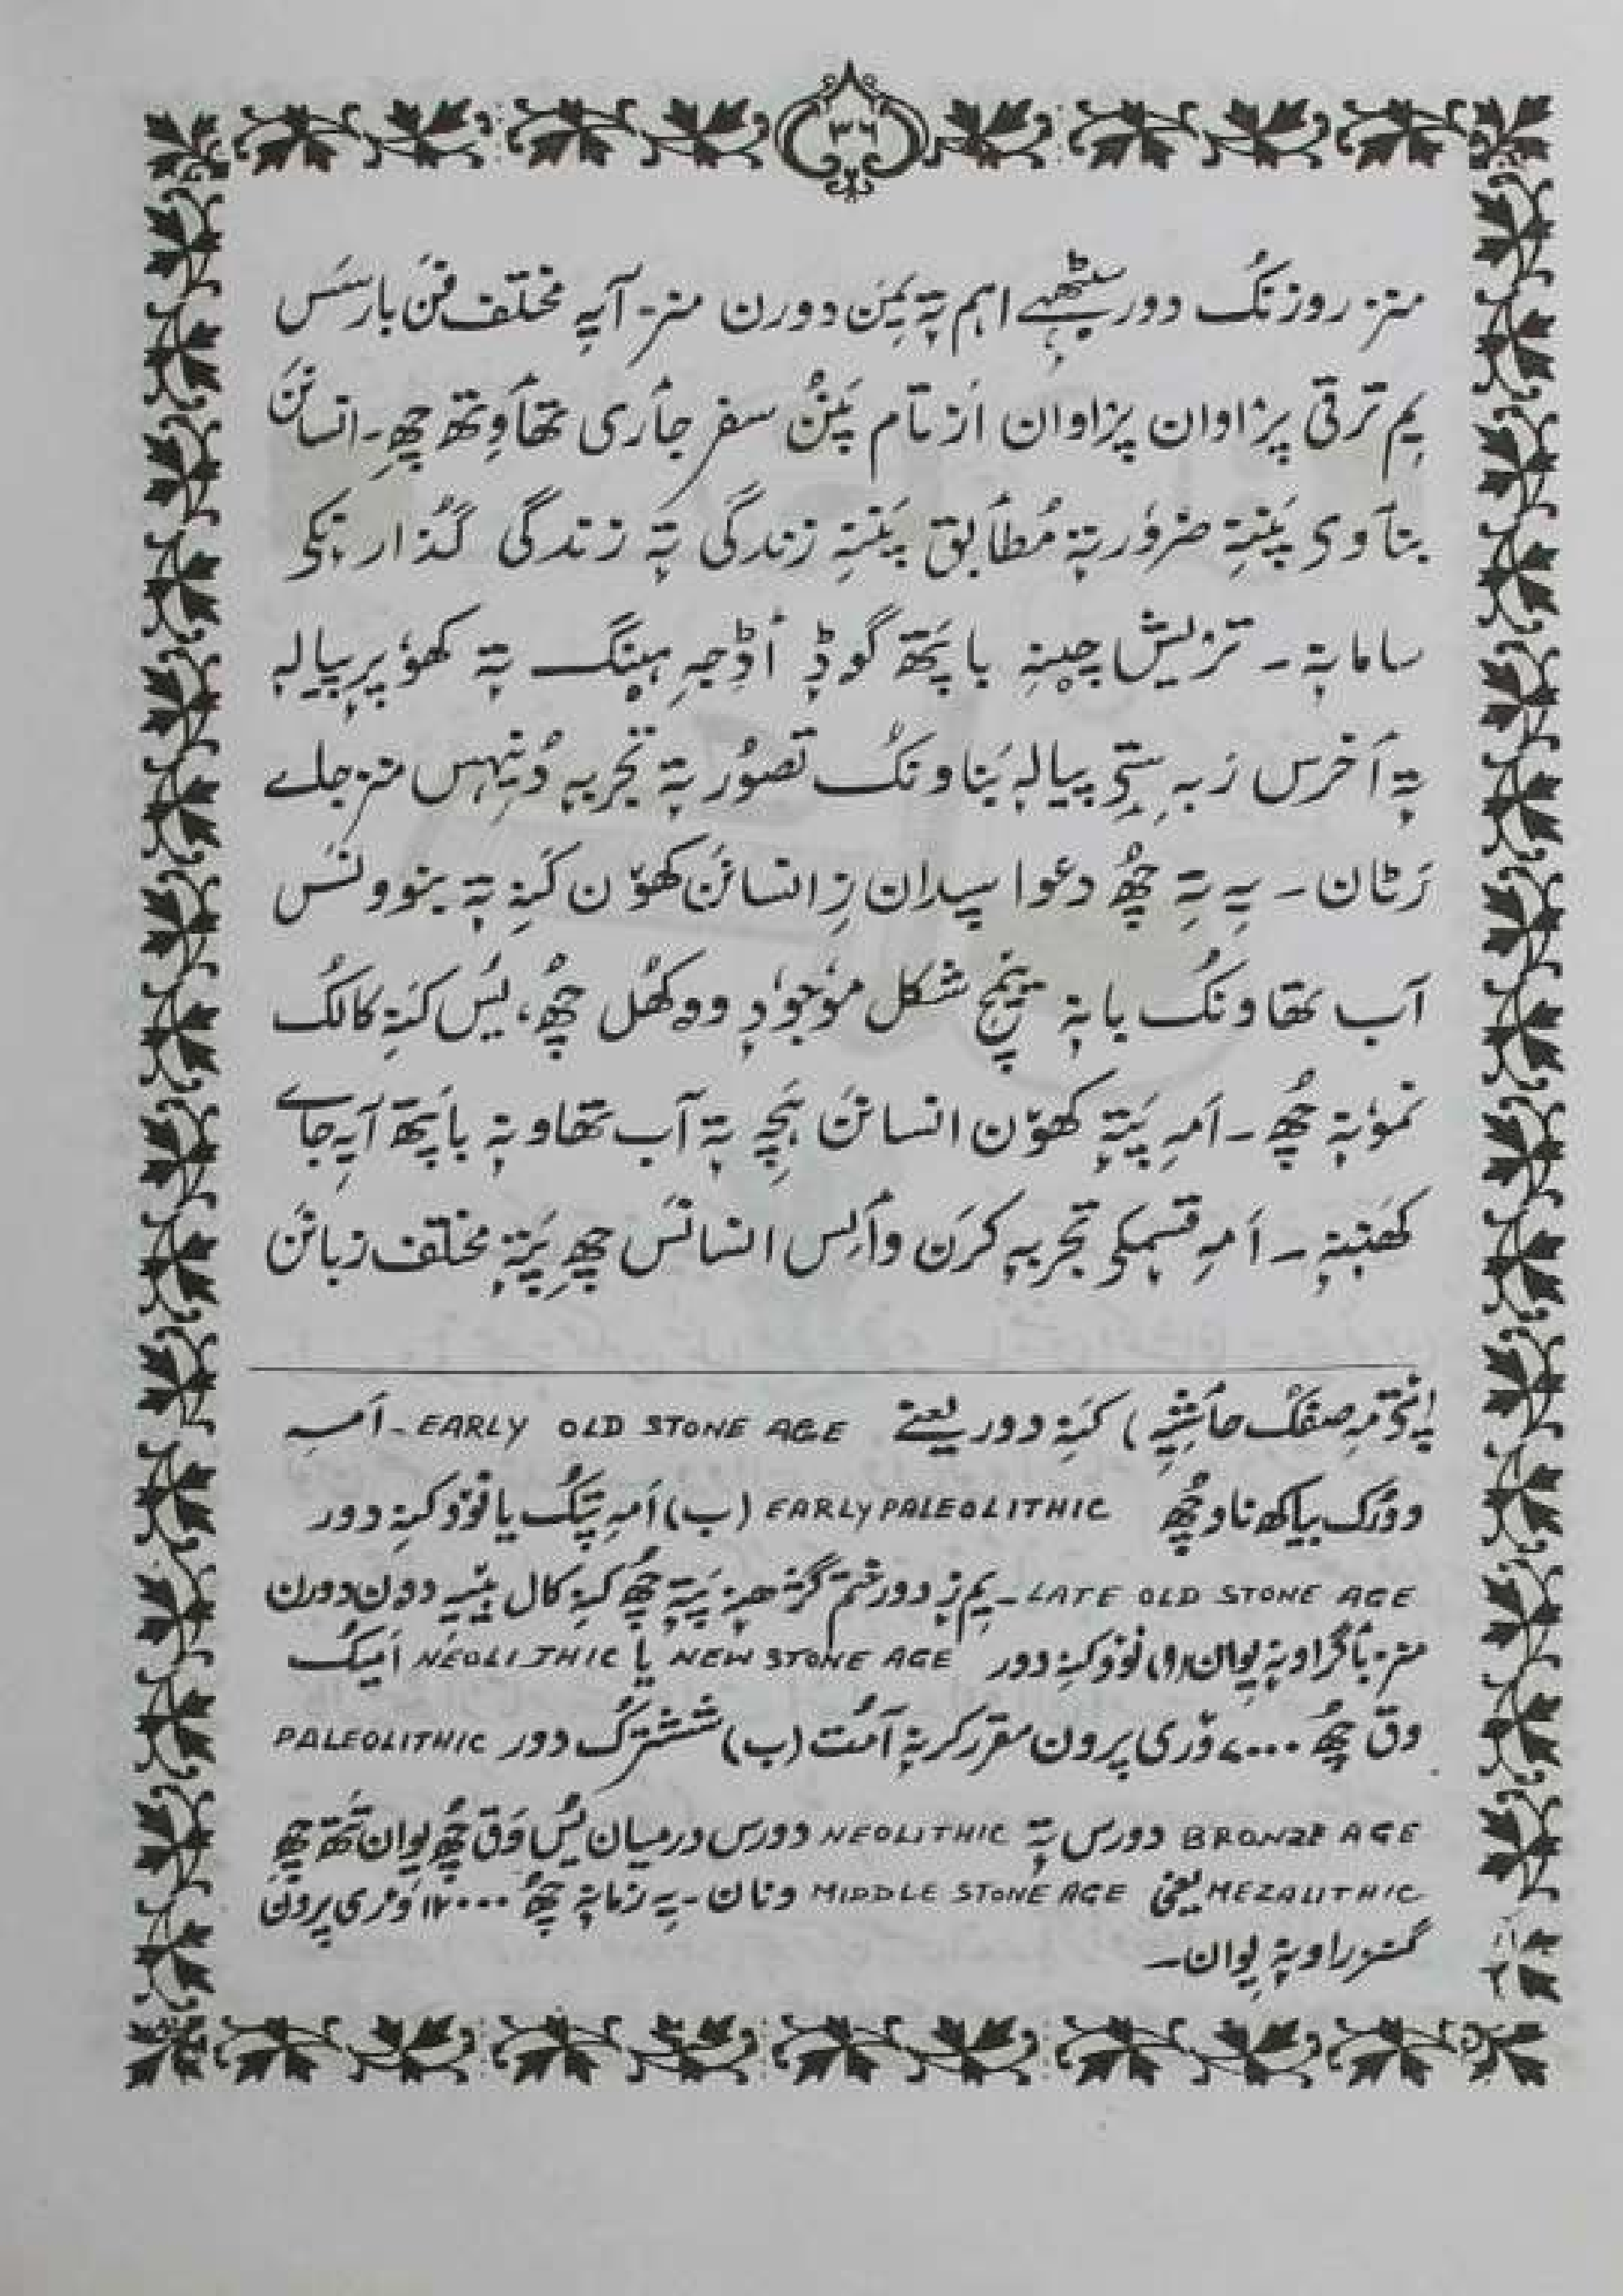 ۳۶
منز روزنُک دور سٮ۪ٹھہے اہم تہٕ یِمَن دورن منز۔ آیہِ مختلف فن بارسَس
یِم ترقی پزاوان پزاوان اَز تام پَنُن سفر جاری تھأوِتھ چھِ۔ انسانَن
بنأوی پَننہِ ضرورتہٕ مُطأبق پَننہِ زندگی تہٕ زندگی گذارنٕکی
سامانہٕ۔ تریش چینہٕ باپَتھ گوڈٕ أڈِجہِ ہینگ تہٕ کھوٚپرِ پیالہٕ
تہٕ أخرس رَبہِ سٕتی پیالہٕ بَناونُک تصوُر تہٕ تجربہٕ دُنیہس منز جاے
رَٹان۔ یہِ تہِ چھُ دعوا سپدان زِ انسانَن کھوٚن کَنہِ تہٕ ینوونس
آب تھاونُک بانہٕ پٔنٛج شکل موٗجوٗدٕ ووکھُل چھُ، یُس کَنہِ کالُک
نموٗنہٕ چھُ۔ اَمہِ پَتہٕ کھوٚن انسانَن بٔچہِ تہٕ آب تھاونہٕ بأپَتھ آیہِ جاے
کھَننہٕ۔ اَمہِ قسمٕکی تجربہٕ کرَن وألِس انسانَس چھِ پَتہٕ مختلف زبانَن
(پٔتمہِ صفحُک حأشیہِ) کَنہِ دور یعنے EARLY OLD STONE AGE ۔ اَمہِ
دورُک بیاکھ ناو چھُ EARLY PALEOLITHIC (ب) اَمہِ پَتُک یا نوٚو کَنہِ دور
LATE OLD STONE AGE ۔ یِم زٕ دور ختم گژھنہٕ پَتہٕ چھُ کَنہِ کال بیٚیہِ دوٚن دورن
منز بأگراونہٕ یِوان (۱) نوٚو کَنہِ دور NEW STONE AGE یا NEOLITHIC اَمیُک
وق چھُ ۷۰۰۰ ؤری پرون مقرر کرنہٕ آمُت (ب) مُشترک دور PALEOLITHIC
BRONZE AGE دورس تہٕ NEOLITHIC دورس درمیان یُس وَق چھُ یِوان تَتھ چھِ
MEZALITHIC یعنی MIDDLE STONE AGE ونان۔ یہِ زمانہٕ چھُ ۱۲۰۰۰ ؤری پرون
گنزراونہٕ یِوان۔